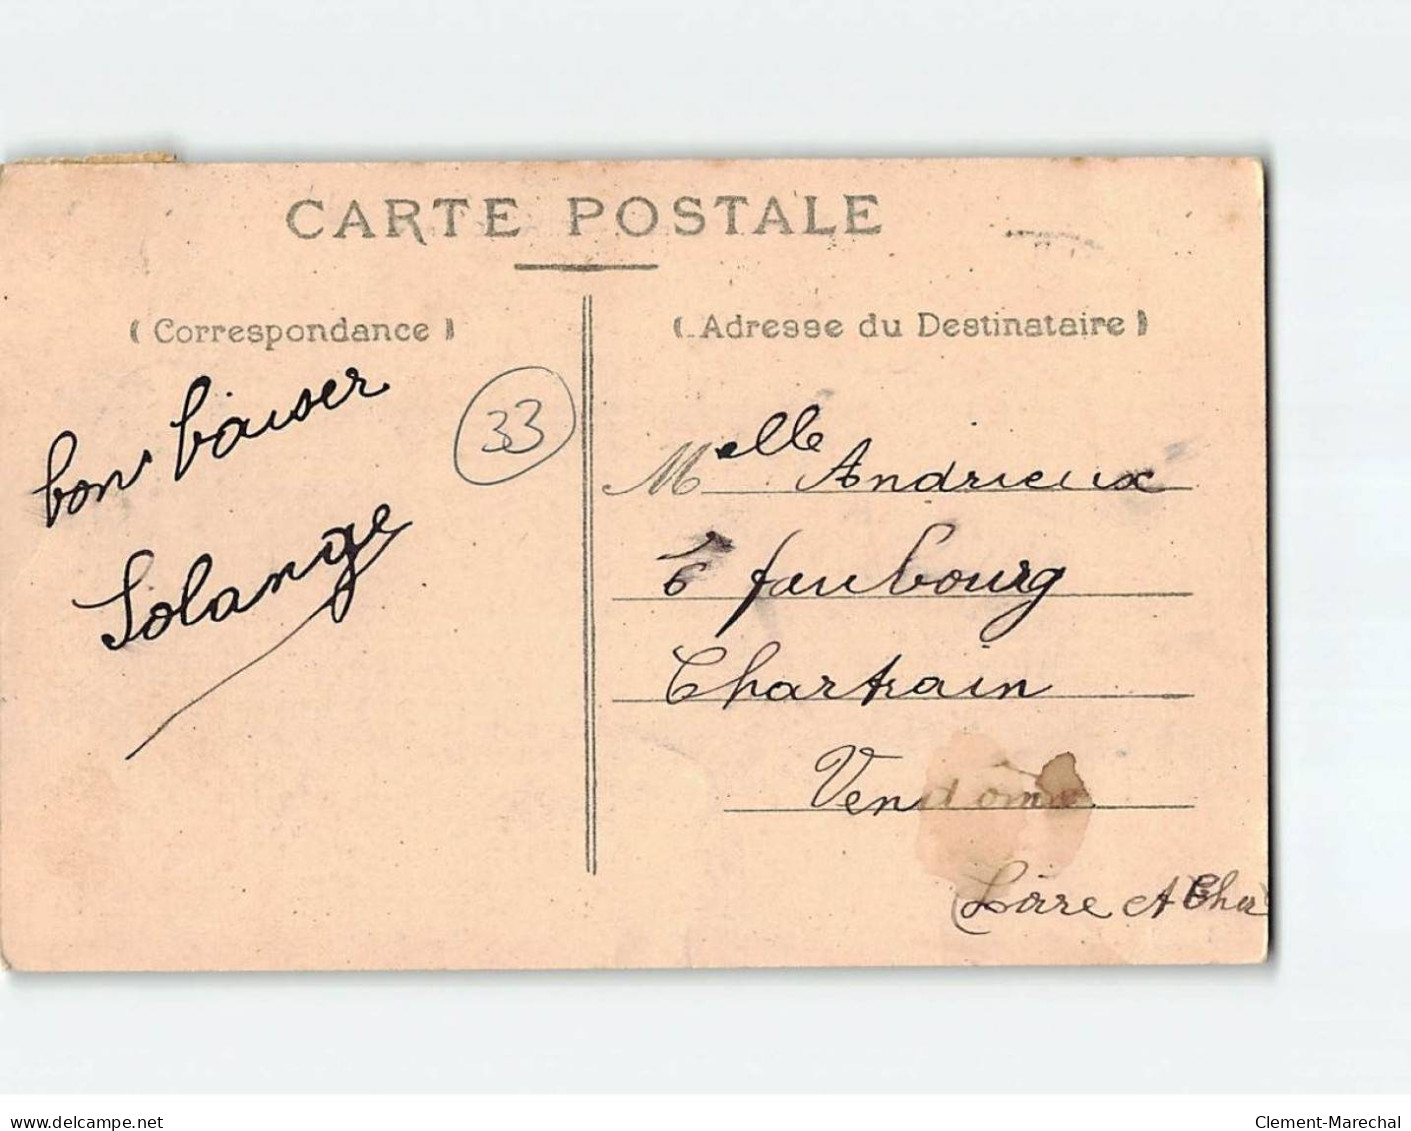 CARTE POSTALE
( Correspondance )
( Adresse du Destinataire )
bon baiser
Solange
33
Melle Andrieux
6 faubourg
Chartrain
Vendome
(Loire et Cher)
www.delcampe.net
Clement-Marechal